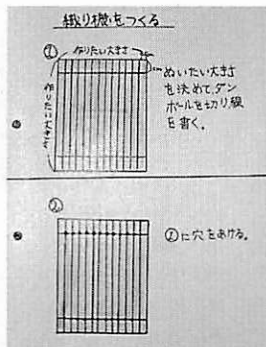 織り機をつくる
①
作りたい大きさ
作りたい大きさ
ぬいたい大きさ
を決めて、ダン
ボールを切り、線
を書く。
②
①に穴をあける。